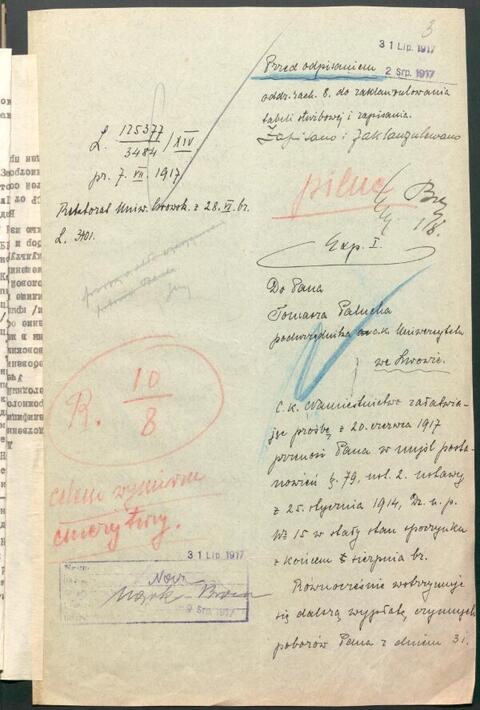 3
31 Lip. 1917
2 Srp. 1917
Przed odpisaniem
oddz. rach. 8. do zaklauzulowania
tabeli służbowej i zapisania.
Zapisano i zaklauzulowano
L. 125377/3484/XIV
pr. 7. VII. 1917
Rektorat Uniw. lwowsk. z 28. VI. br.
L. 3401.
pilne
1/8.
Exp. I.
Do Pana
Tomasza Palucha
podurzędnika c.k. Uniwersytetu
we Lwowie.
R. 10/8
celem wymiaru
emerytury.
C. k. Namiestnictwo załatwia-
jąc prośbę z 20. czerwca 1917
przenosi Pana w myśl posta-
nowień §. 79, ust. 2. ustawy
z 25. stycznia 1914, Dz. u. p.
Nr 15 w stały stan spoczynku
z końcem sierpnia br.
Równocześnie wstrzymuje
się dalszą wypłatę czynnych
poborów Pana z dniem 31.
31 Lip 1917
9 Srp. 1917